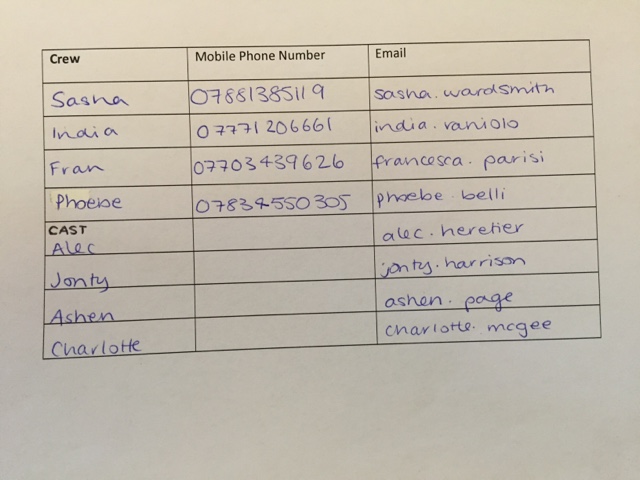 Crew Mobile Phone Number Email
Sasha 07881385119 sasha.wardsmith
India 07771206661 india.raniolo
Fran 07703439626 francesca.parisi
Phoebe 07834550305 phoebe.belli
CAST
Alec alec.heretier
Jonty jonty.harrison
Ashen ashen.page
Charlotte charlotte.mcgee